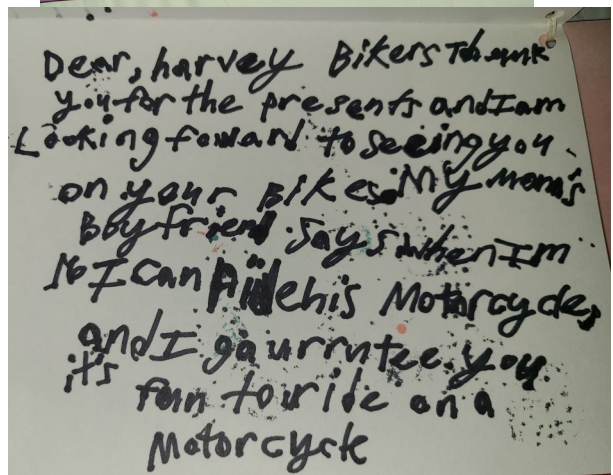 Dear, harvey Bikers Thank
you for the presents and I am
Looking foward to seeing you
on your Bikes. My mom's
Boyfriend says when Im
16 I can Ride his Motorcycle,
and I gaurrntee you
it's fun to wride on a
Motorcycle